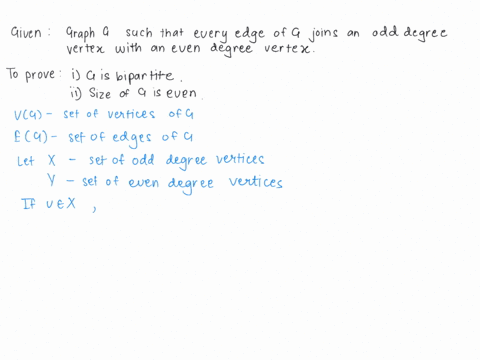 Given : Graph G such that every edge of G joins an odd degree
vertex with an even degree vertex.
To prove : i) G is bipartite.
ii) Size of G is even.
V(G) - set of vertices of G
E(G) - set of edges of G
Let X - set of odd degree vertices
Y - set of even degree vertices
If v ∈ X ,